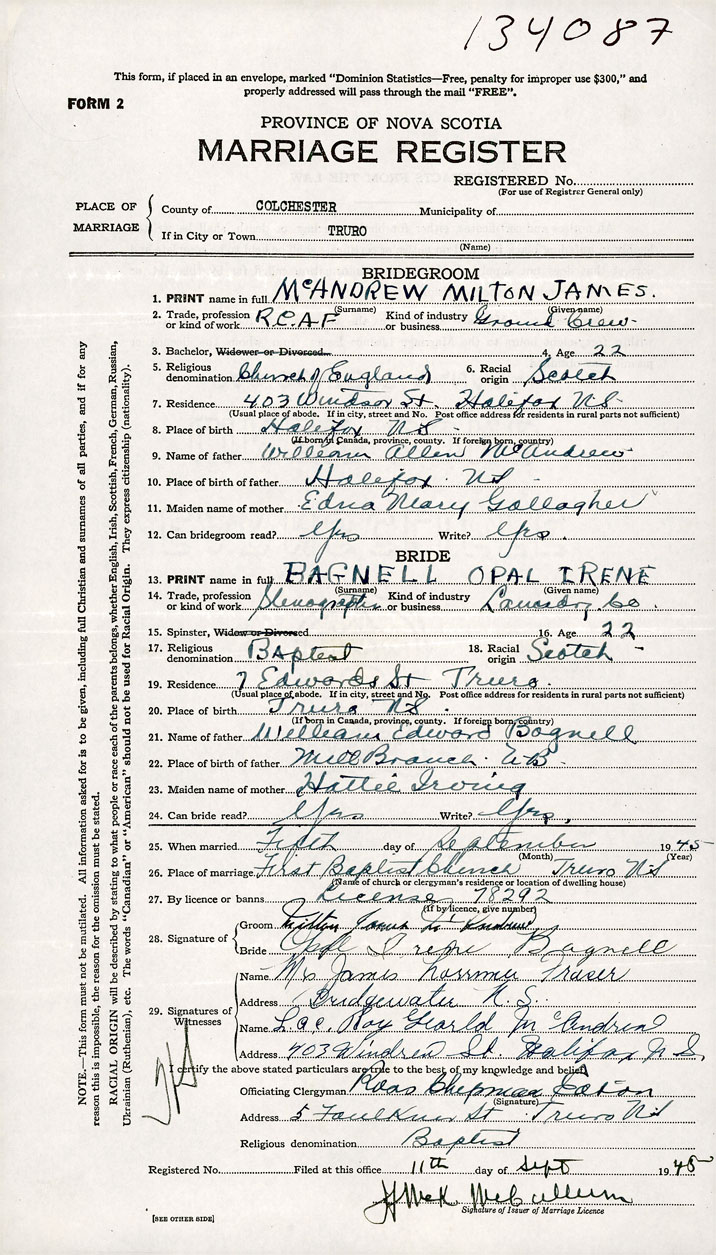 134087
This form, if placed in an envelope, marked "Dominion Statistics—Free, penalty for improper use $300," and
properly addressed will pass through the mail "FREE".
FORM 2
PROVINCE OF NOVA SCOTIA
MARRIAGE REGISTER
REGISTERED No.
(For use of Registrer General only)
PLACE OF MARRIAGE
County of COLCHESTER Municipality of
If in City or Town TRURO
(Name)
BRIDEGROOM
1. PRINT name in full McANDREW MILTON JAMES.
(Surname) (Given name)
2. Trade, profession or kind of work R.C.A.F Kind of industry or business Ground Crew
3. Bachelor, Widower or Divorced 4. Age 22
5. Religious denomination Church of England 6. Racial origin Scotch
7. Residence 403 Windsor St Halifax NS
(Usual place of abode. If in city, street and No. Post office address for residents in rural parts not sufficient)
8. Place of birth Halifax N.S.
(If born in Canada, province, county. If foreign born, country)
9. Name of father William Allen McAndrew
10. Place of birth of father Halifax NS
11. Maiden name of mother Edna Mary Gallagher
12. Can bridegroom read? Yes Write? Yes.
BRIDE
13. PRINT name in full BAGNELL OPAL IRENE
(Surname) (Given name)
14. Trade, profession or kind of work Stenographer Kind of industry or business Co.
15. Spinster, Widow or Divorced 16. Age 22
17. Religious denomination Baptist 18. Racial origin Scotch
19. Residence 7 Edwards St Truro.
(Usual place of abode. If in city, street and No. Post office address for residents in rural parts not sufficient)
20. Place of birth Truro NS
(If born in Canada, province, county. If foreign born, country)
21. Name of father William Edward Bagnell
22. Place of birth of father Mill Branch N.B.
23. Maiden name of mother Hattie Irving
24. Can bride read? Yes Write? Yes,
25. When married Fifth day of September 1945
(Month) (Year)
26. Place of marriage First Baptist Church Truro NS
(Name of church or clergyman's residence or location of dwelling house)
27. By licence or banns License 78292
(If by licence, give number)
28. Signature of
Groom Milton James McAndrew
Bride Opal Irene Bagnell
29. Signatures of Witnesses
Name Mrs James Fraser
Address Bridgewater N.S.
Name L.a.c. Roy Gearld McAndrew
Address 403 Windsor St. Halifax N.S.
I certify the above stated particulars are true to the best of my knowledge and belief.
Officiating Clergyman Ross Chapman Eaton
(Signature)
Address 5 Faulkner St Truro NS
Religious denomination Baptist
Registered No. Filed at this office 11th day of Sept 1945
McCullum
Signature of Issuer of Marriage Licence
[SEE OTHER SIDE]
NOTE.—This form must not be mutilated. All information asked for is to be given, including full Christian and surnames of all parties, and if for any
reason this is impossible, the reason for the omission must be stated.
RACIAL ORIGIN will be described by stating to what people or race each of the parents belongs, whether English, Irish, Scottish, French, German, Russian,
Ukrainian (Ruthenian), etc. The words "Canadian" or "American" should not be used for Racial Origin. They express citizenship (nationality).